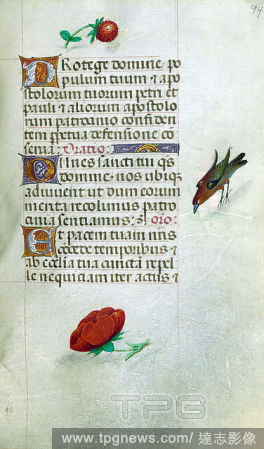 94
Protege domine po
pulum tuum et apo
stolorum tuorum petri et
pauli et aliorum apostolo
rum patrocinio confiden
tem perpetua defensione cō
serua: Oratio:
Omnes sancti tui q̄s
domine nos ubiq̄
adiuuent ut dum eorum
merita recolimus patro
cinia sentiamus: oro:
Et pacem tuam nr̄is
cōcede temporibus et
ab ecclīa tua cunctā repel
le nequiciam iter actus et
TPG
www.tpgnews.com / 達志影像